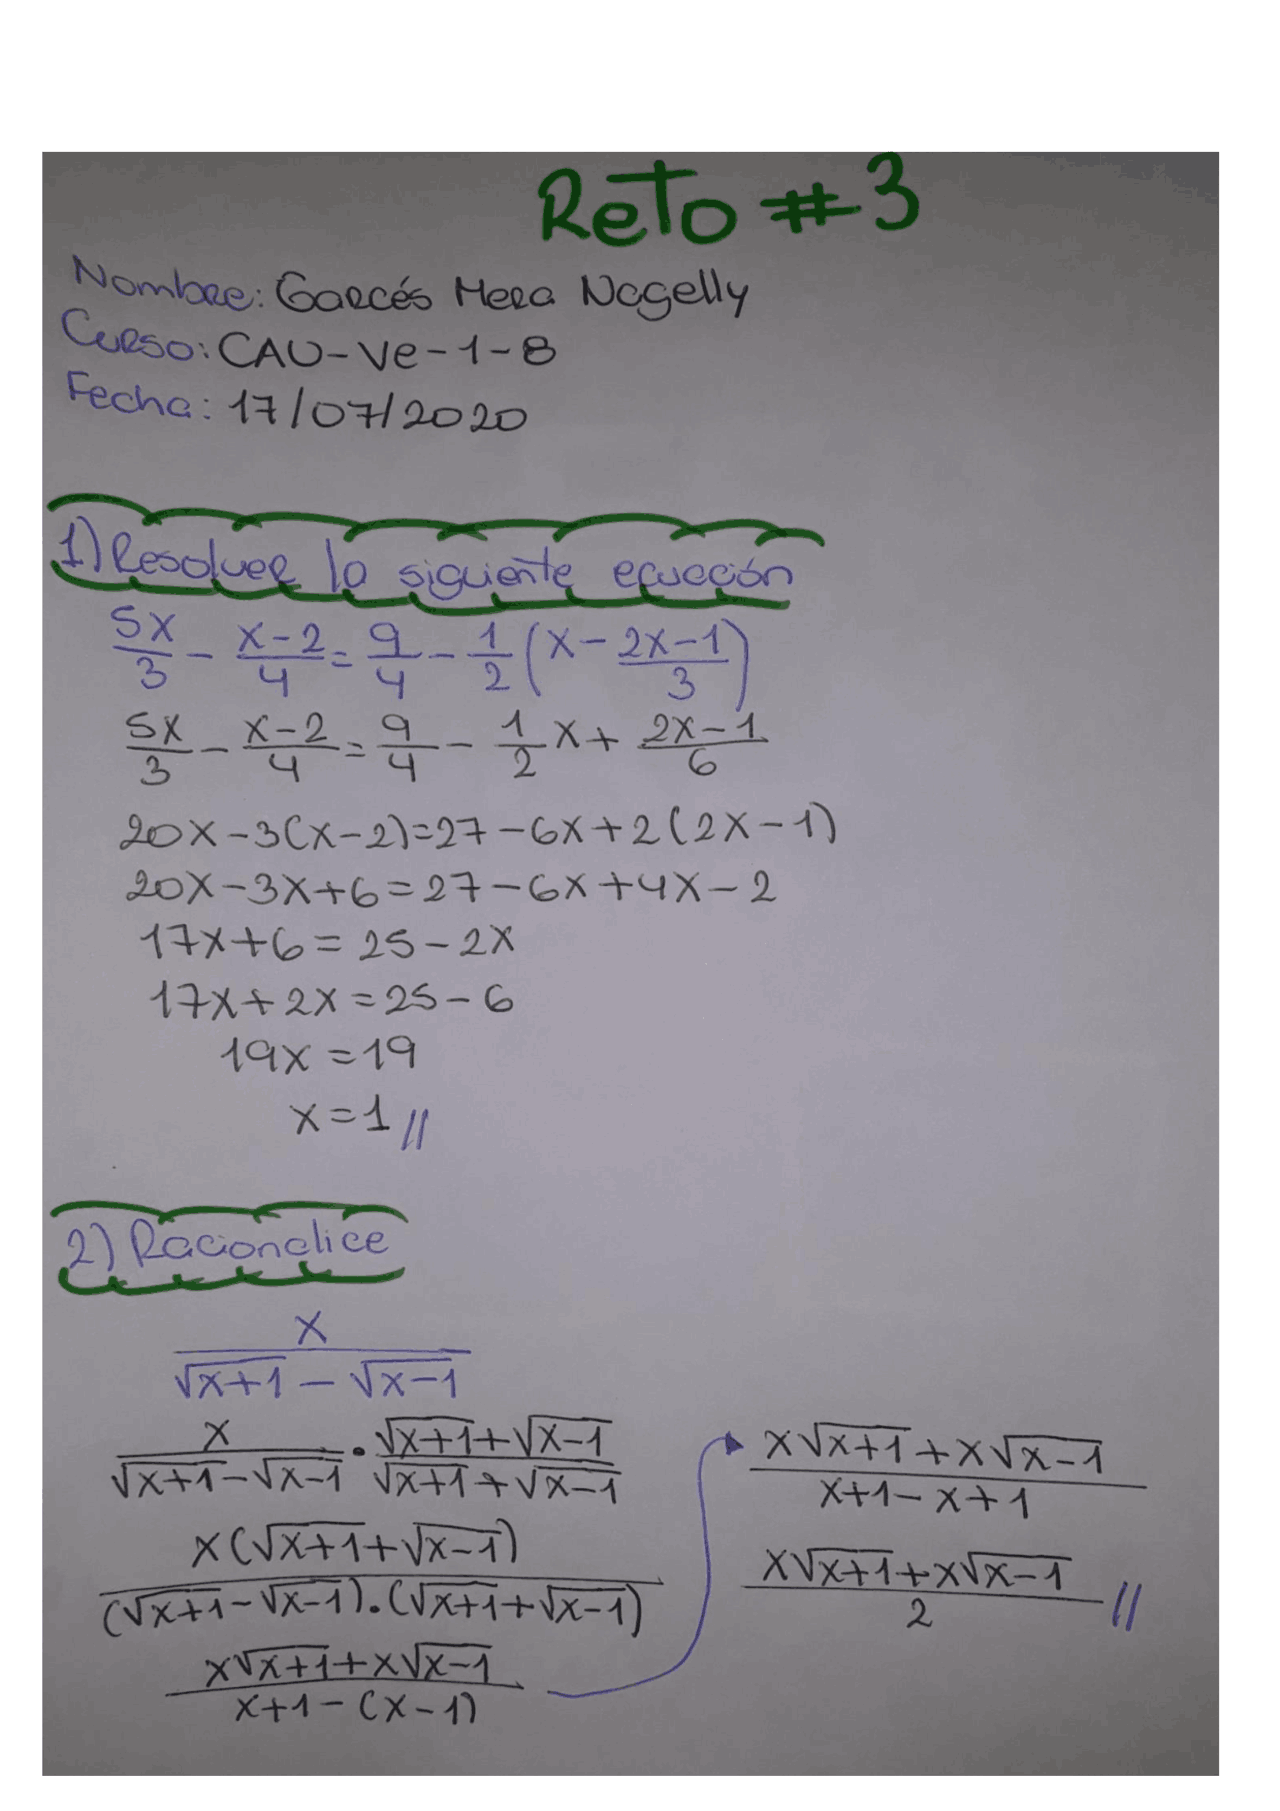 Reto #3
Nombre: Garcés Mera Nagelly
Curso: CAU-Ve-1-8
Fecha: 17/07/2020
1) Resolver la siguiente ecuación
5x/3 - x-2/4 = 9/4 - 1/2 (x - 2x-1/3)
5x/3 - x-2/4 = 9/4 - 1/2 x + 2x-1/6
20x-3(x-2)=27-6x+2(2x-1)
20x-3x+6=27-6x+4x-2
17x+6=25-2x
17x+2x=25-6
19x=19
x=1//
2) Racionalice
x/√x+1 - √x-1
x/√x+1-√x-1 · √x+1+√x-1/√x+1+√x-1
x(√x+1+√x-1)/(√x+1-√x-1).(√x+1+√x-1)
x√x+1+x√x-1/x+1-(x-1)
x√x+1+x√x-1/x+1-x+1
x√x+1+x√x-1/2 //